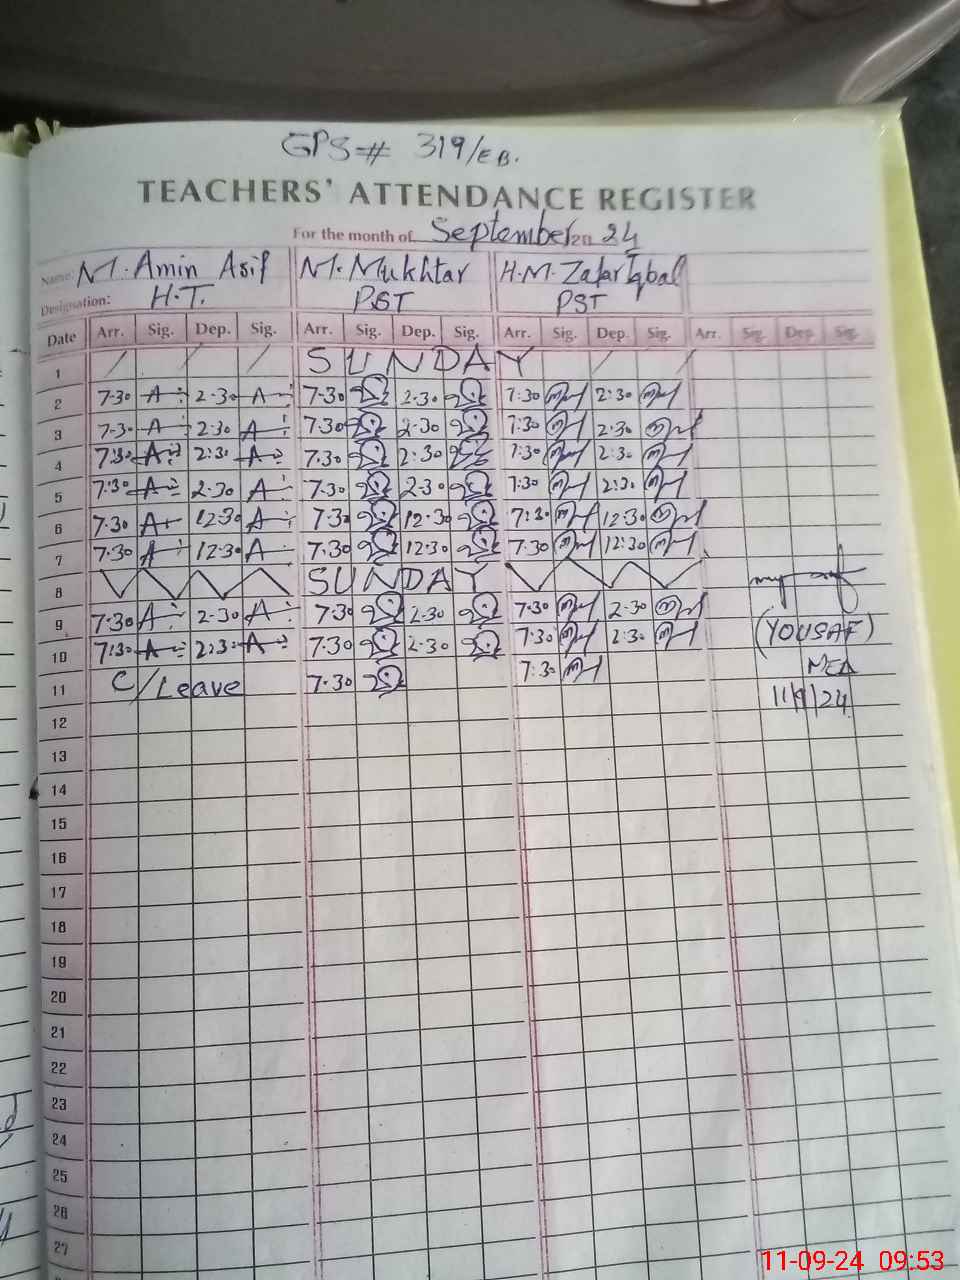 GPS# 319/EB.
TEACHERS' ATTENDANCE REGISTER
For the month of September 20 24
Name: M. Amin Asif M. Mukhtar H.M. Zafar Iqbal
Designation: H.T. PST PST
Date Arr. Sig. Dep. Sig. Arr. Sig. Dep. Sig. Arr. Sig. Dep. Sig. Arr. Sig. Dep. Sig.
1 SUNDAY
2 7-30 2-30 7-30 2.30 7:30 2:30
3 7-30 2:30 7.30 2.30 7:30 2.30
4 7:30 2:30 7.30 2:30 7:30 2:30
5 7:30 2.30 7.30 2.30 7:30 2:30
6 7.30 12.30 7.30 12.30 7:30 12:30
7 7.30 12:30 7.30 12:30 7:30 12:30
8 SUNDAY
9 7:30 2-30 7:30 2:30 7:30 2:30
10 7:30 2:30 7.30 2.30 7:30 2:30
(YOUSAF)
11 C/Leave 7.30 7:30
MEA
11/9/24
12
13
14
15
16
17
18
19
20
21
22
23
24
25
26
27
11-09-24 09:53